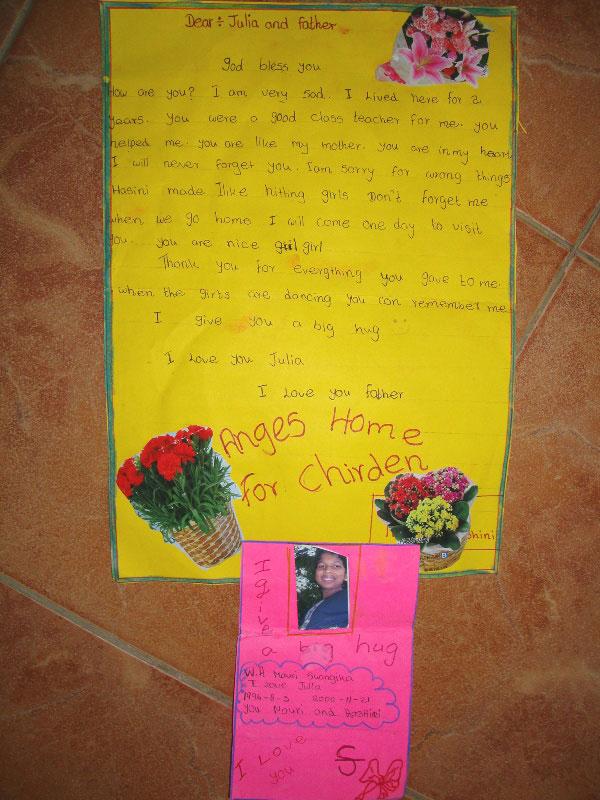 Dear÷ Julia and father
God bless you
How are you? I am very sad. I Lived here for 2
years. you were a good class teacher for me. you
helped me. you are like my mother. you are in my heart
I will never forget you. I am sorry for wrong things
Hasini made I like hitting girls Don't forget me
when we go home I will come one day to visit
you. you are nice girl
Thank you for everything you gave to me.
when the girls are dancing you can remember me
I give you a big hug
I Love you Julia
I Love you father
Anges Home
For Chirden
hini
I give
a big hug
W.A Mauri
I Love Julia
1996-8-3 2000-11-21
you Mauri and
I Love
you
S